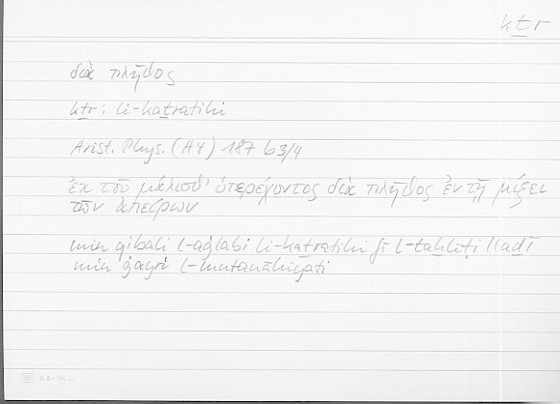 kṯr
διὰ πλῆθος
kṯr : li-kaṯratihi
Arist. Phys. (A4) 187 b3/4
ἐκ τοῦ μάλισθ' ὑπερέχοντος διὰ πλῆθος ἐν τῇ μίξει
τῶν ἀπείρων
min qibali l-aġlabi li-kaṯratihi fī l-taḫlīṭi llaḏī
min ġayri l-mutanāhiyati